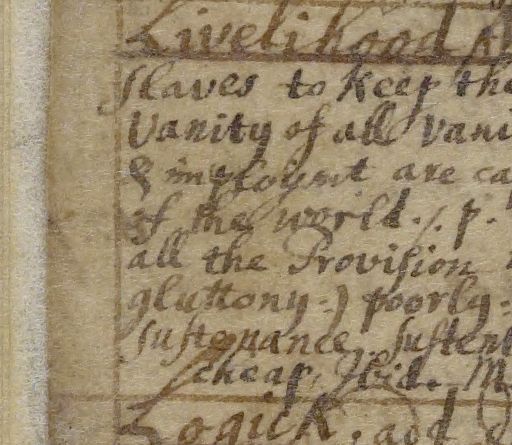 Livelihood
slaves to keep the
Vanity of all vani
& imploymt are ca
of the world ./. p.
all the Provision
gluttony-) poorly-
sustenance, susten
cheap, Ibid. M
Logick, and